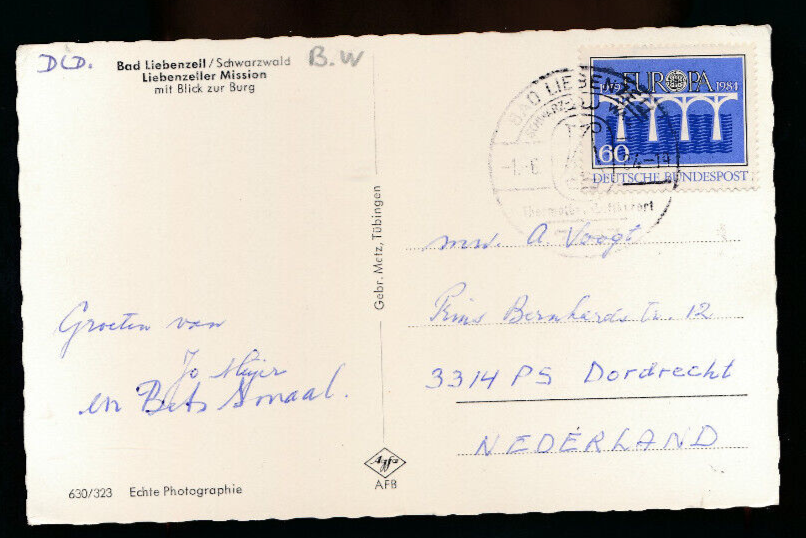 DLD.
Bad Liebenzell / Schwarzwald
Liebenzeller Mission
mit Blick zur Burg
B.W
EUROPA
1984
60
DEUTSCHE BUNDESPOST
BAD LIEBENZELL
Gebr. Metz, Tübingen
mw. A. Voogt
Prins Bernhardstr. 12
3314 PS Dordrecht
NEDERLAND
Groeten van
Jo Meijer
en Bets Smaal.
Agfa
AFB
630/323 Echte Photographie